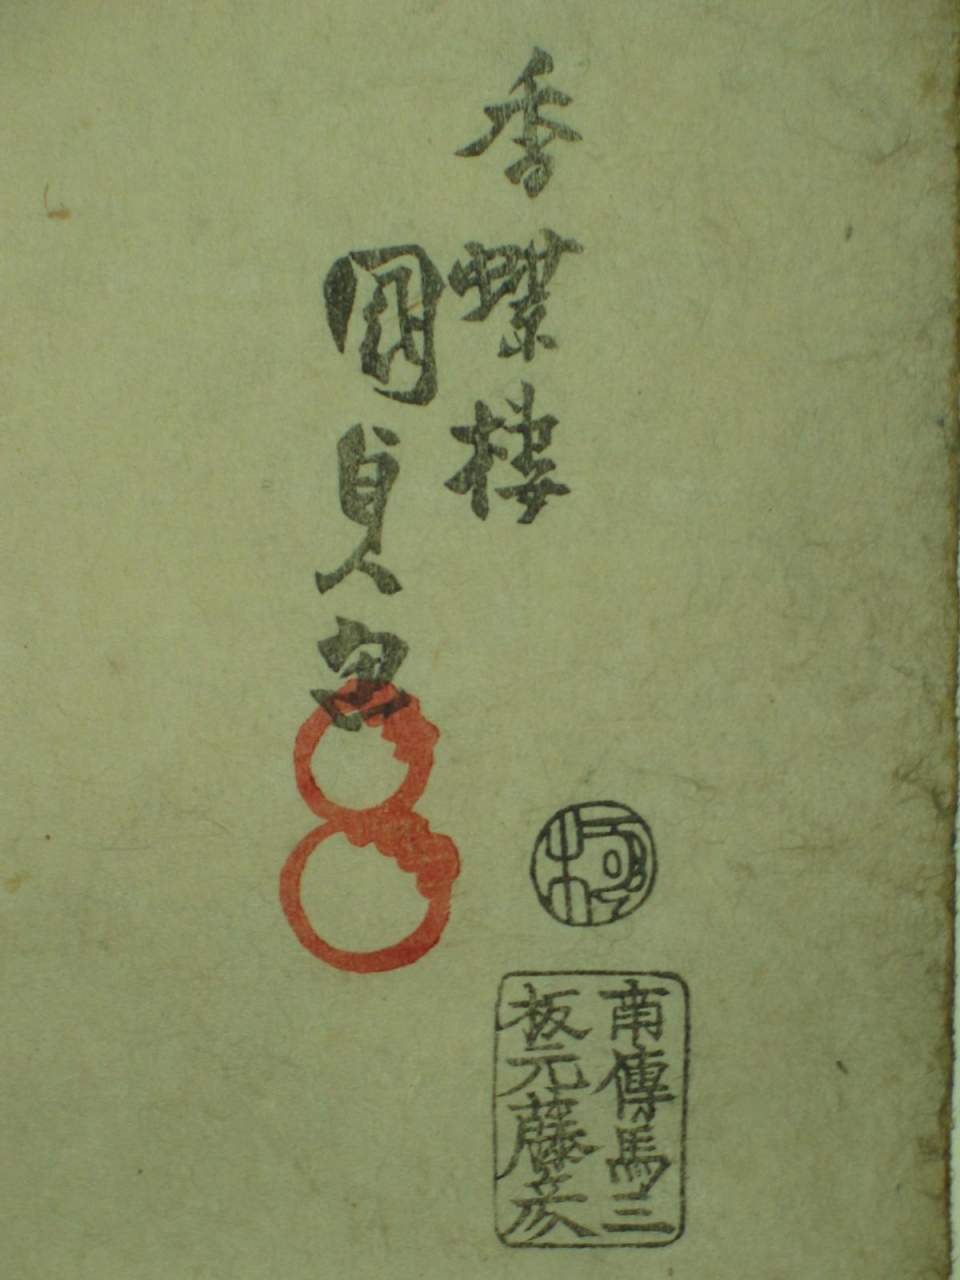 香蝶樓
國貞画
極
南傳馬三
板元藤彦